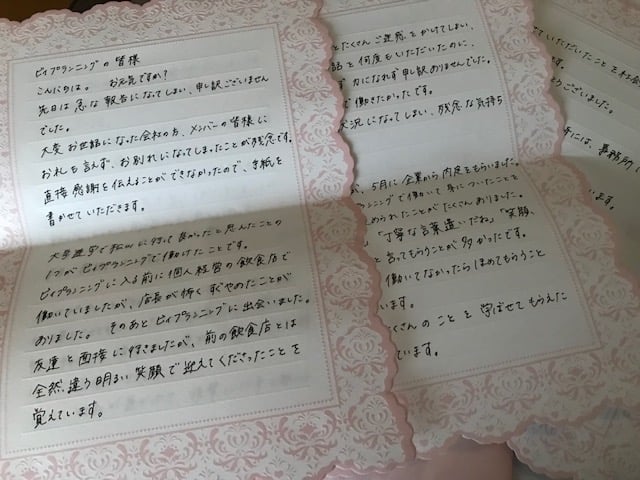 ビィプランニングの皆様
こんにちは。 お元気ですか?
先日は急な報告になってしまい、申し訳ございません
でした。
大変お世話になった会社の方、メンバーの皆様に
お礼も言えず、お別れになってしまったことが残念です。
直接感謝を伝えることができなかったので、手紙を
書かせていただきます。
大学進学で松山に来て良かったと思えたことの
1つがビィプランニングで働けたことです。
ビィプランニングに入る前に個人経営の飲食店で
働いていましたが、店長が怖くすぐやめたことが
ありました。 そのあとビィプランニングに出会いました。
友達と面接に行きましたが、前の飲食店とは
全然違う明るい笑顔で迎えてくださったことを
覚えています。
たくさんご迷惑をかけてしまい、
と何度もいただいたのに、
力になれず申し訳ありませんでした。
で働きたかったです。
状況になってしまい、残念な気持ち
が、5月に企業から内定をもらいました。
ランニングで働いて身についたことを
められたことがたくさんありました。
「丁寧な言葉遣いだね」「笑顔、
と言ってもらうことが多かったです。
働いてなかったらほめてもらうこと
います。
たくさんのことを学ばせてもらえた
ています。
ていただいたことを社会
うございました。
には、事務所
す。